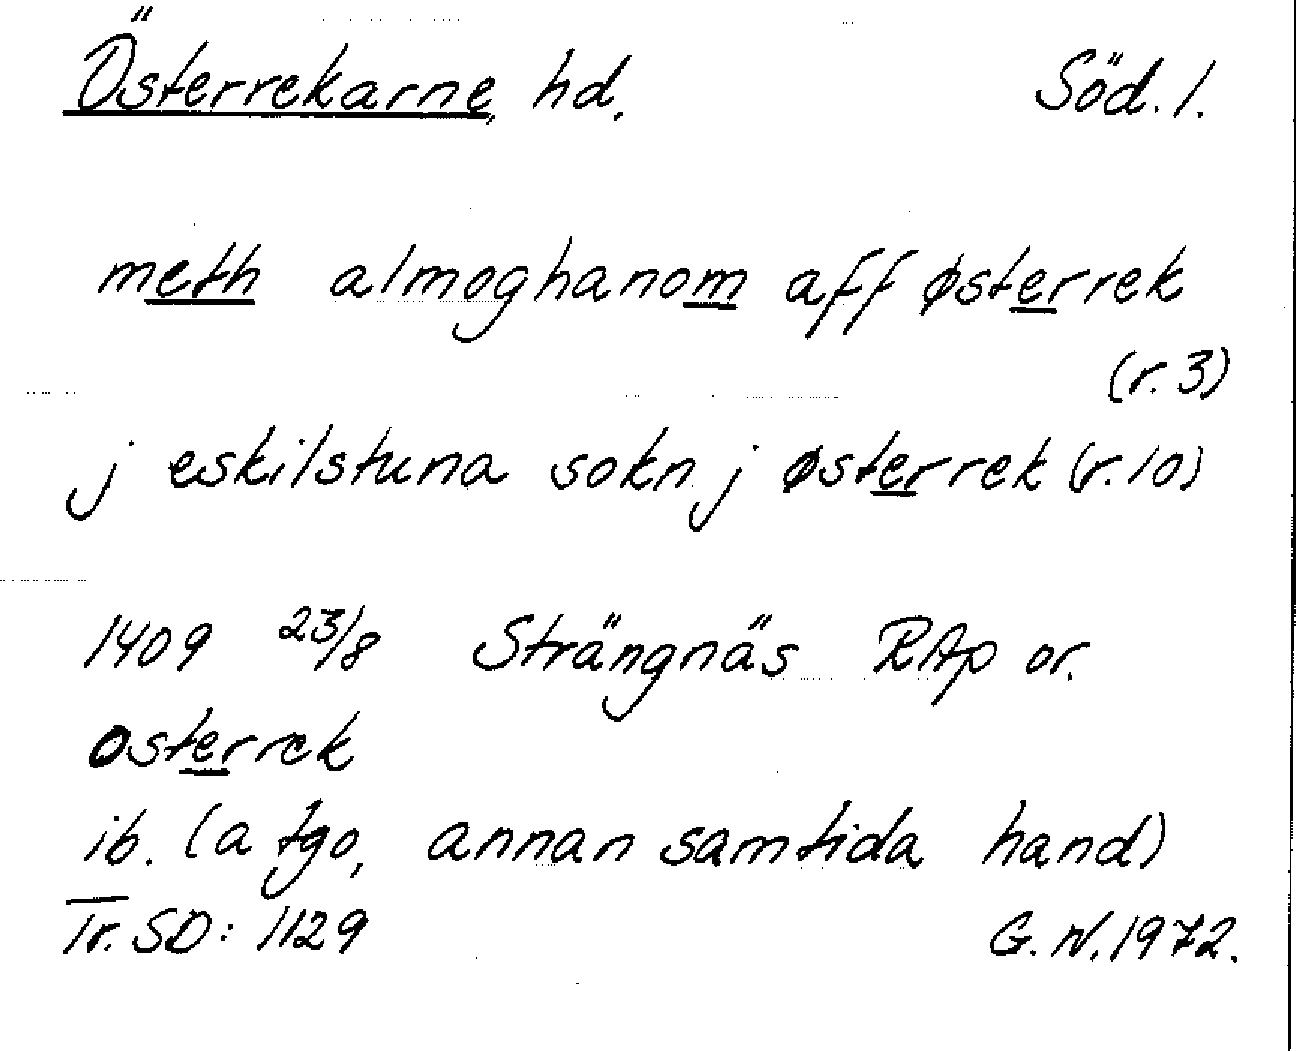 Österrekarne, hd. Söd. 1.
meth almoghanom aff østerrek
(r. 3)
j eskilstuna sokn j østerrek (r. 10)
1409 23/8 Strängnäs RAp or.
osterrek
ib. (a tgo, annan samtida hand)
Tr. SD: 1129 G. N. 1972.